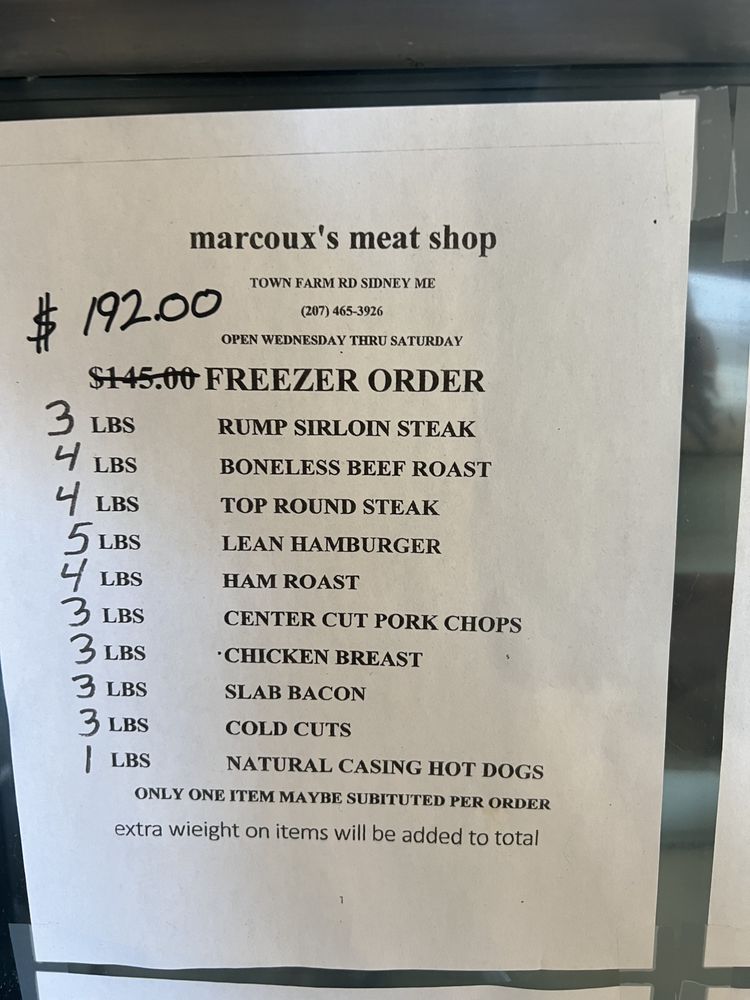 marcoux's meat shop
TOWN FARM RD SIDNEY ME
$ 192.00
(207) 465-3926
OPEN WEDNESDAY THRU SATURDAY
$145.00 FREEZER ORDER
3 LBS RUMP SIRLOIN STEAK
4 LBS BONELESS BEEF ROAST
4 LBS TOP ROUND STEAK
5 LBS LEAN HAMBURGER
4 LBS HAM ROAST
3 LBS CENTER CUT PORK CHOPS
3 LBS CHICKEN BREAST
3 LBS SLAB BACON
3 LBS COLD CUTS
1 LBS NATURAL CASING HOT DOGS
ONLY ONE ITEM MAYBE SUBITUTED PER ORDER
extra wieight on items will be added to total
1